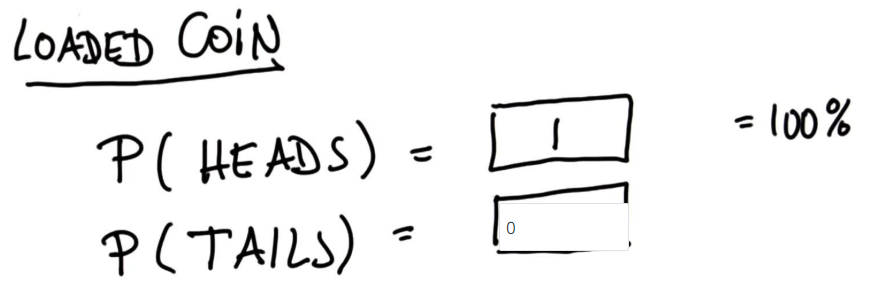 LOADED COIN
P(HEADS) = 1 = 100%
P(TAILS) = 0